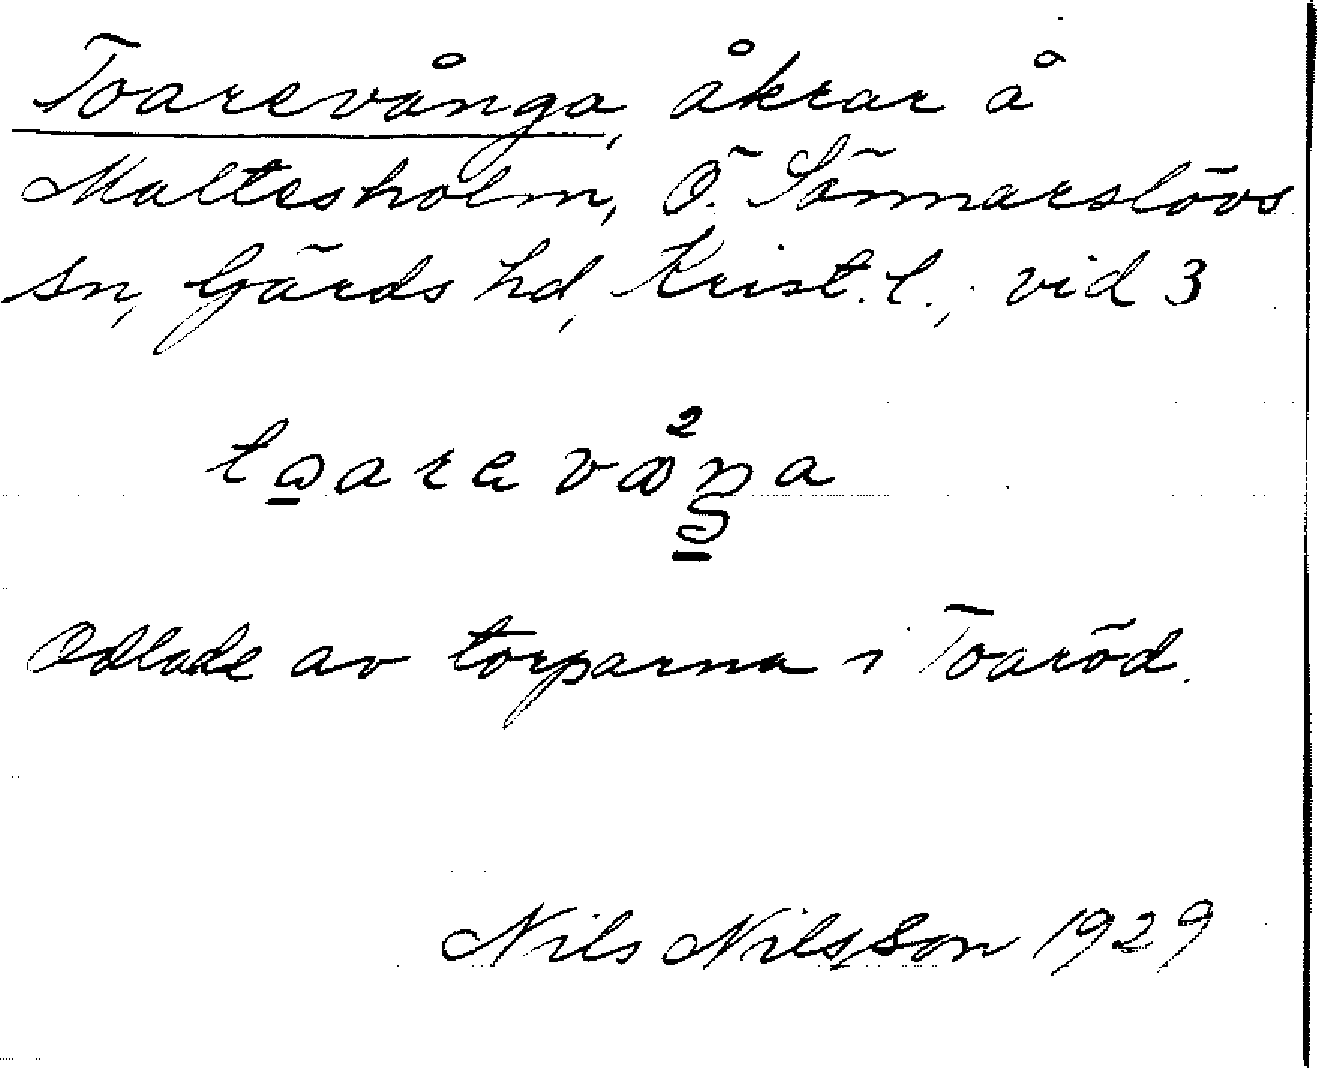 Toarevånga, åkrar å
Maltesholm, Ö. Sönnarslövs
sn, Gärds hd, Krist. l., vid 3
toarevånga
Odlade av torparna i Toaröd.
Nils Nilsson 1929